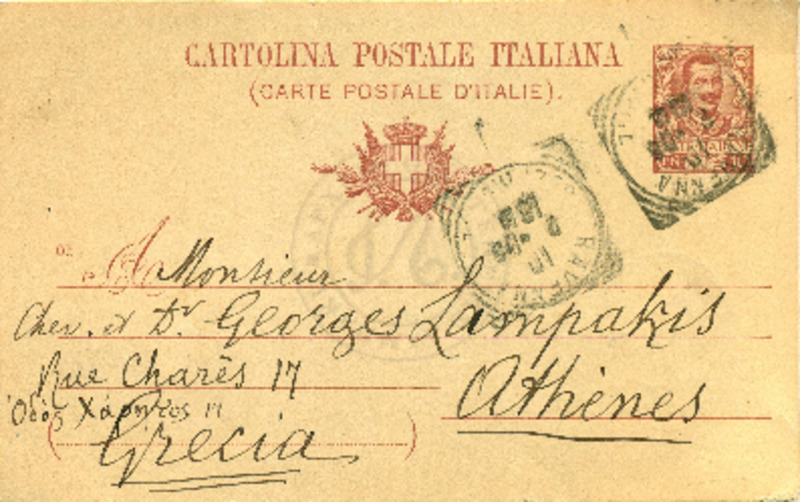 CARTOLINA POSTALE ITALIANA
(CARTE POSTALE D'ITALIE).
RAVENNA
RAVENNA
A Monsieur
Chev. et Dr Georges Lampakis
Rue Charès 17
Athènes
Ὁδὸς Χάρητος 17
(Grecia)